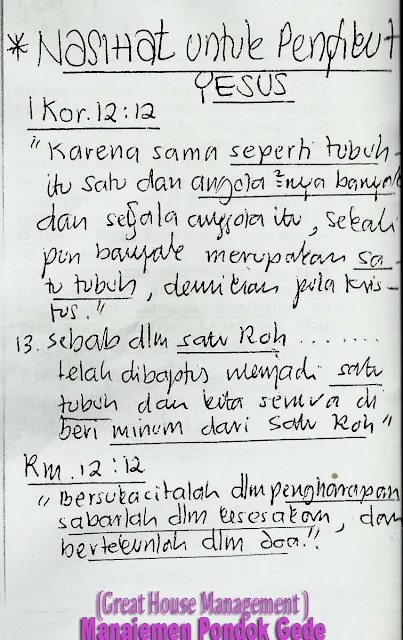 * Nasihat untuk Pengikut
YESUS
I Kor. 12:12
"Karena sama seperti tubuh
itu satu dan anggota ²nya banyak
dan segala anggota itu, sekali
pun banyak merupakan sa-
tu tubuh, demikian pula Kris-
tus."
13. Sebab dlm satu Roh ........
telah dibaptis menjadi satu
tubuh dan kita semua di
beri minum dari satu Roh"
Rm. 12:12
"Bersukacitalah dlm pengharapan
sabarlah dlm kesesakan, dan
bertekunlah dlm doa."
(Great House Management )
Manajemen Pondok Gede